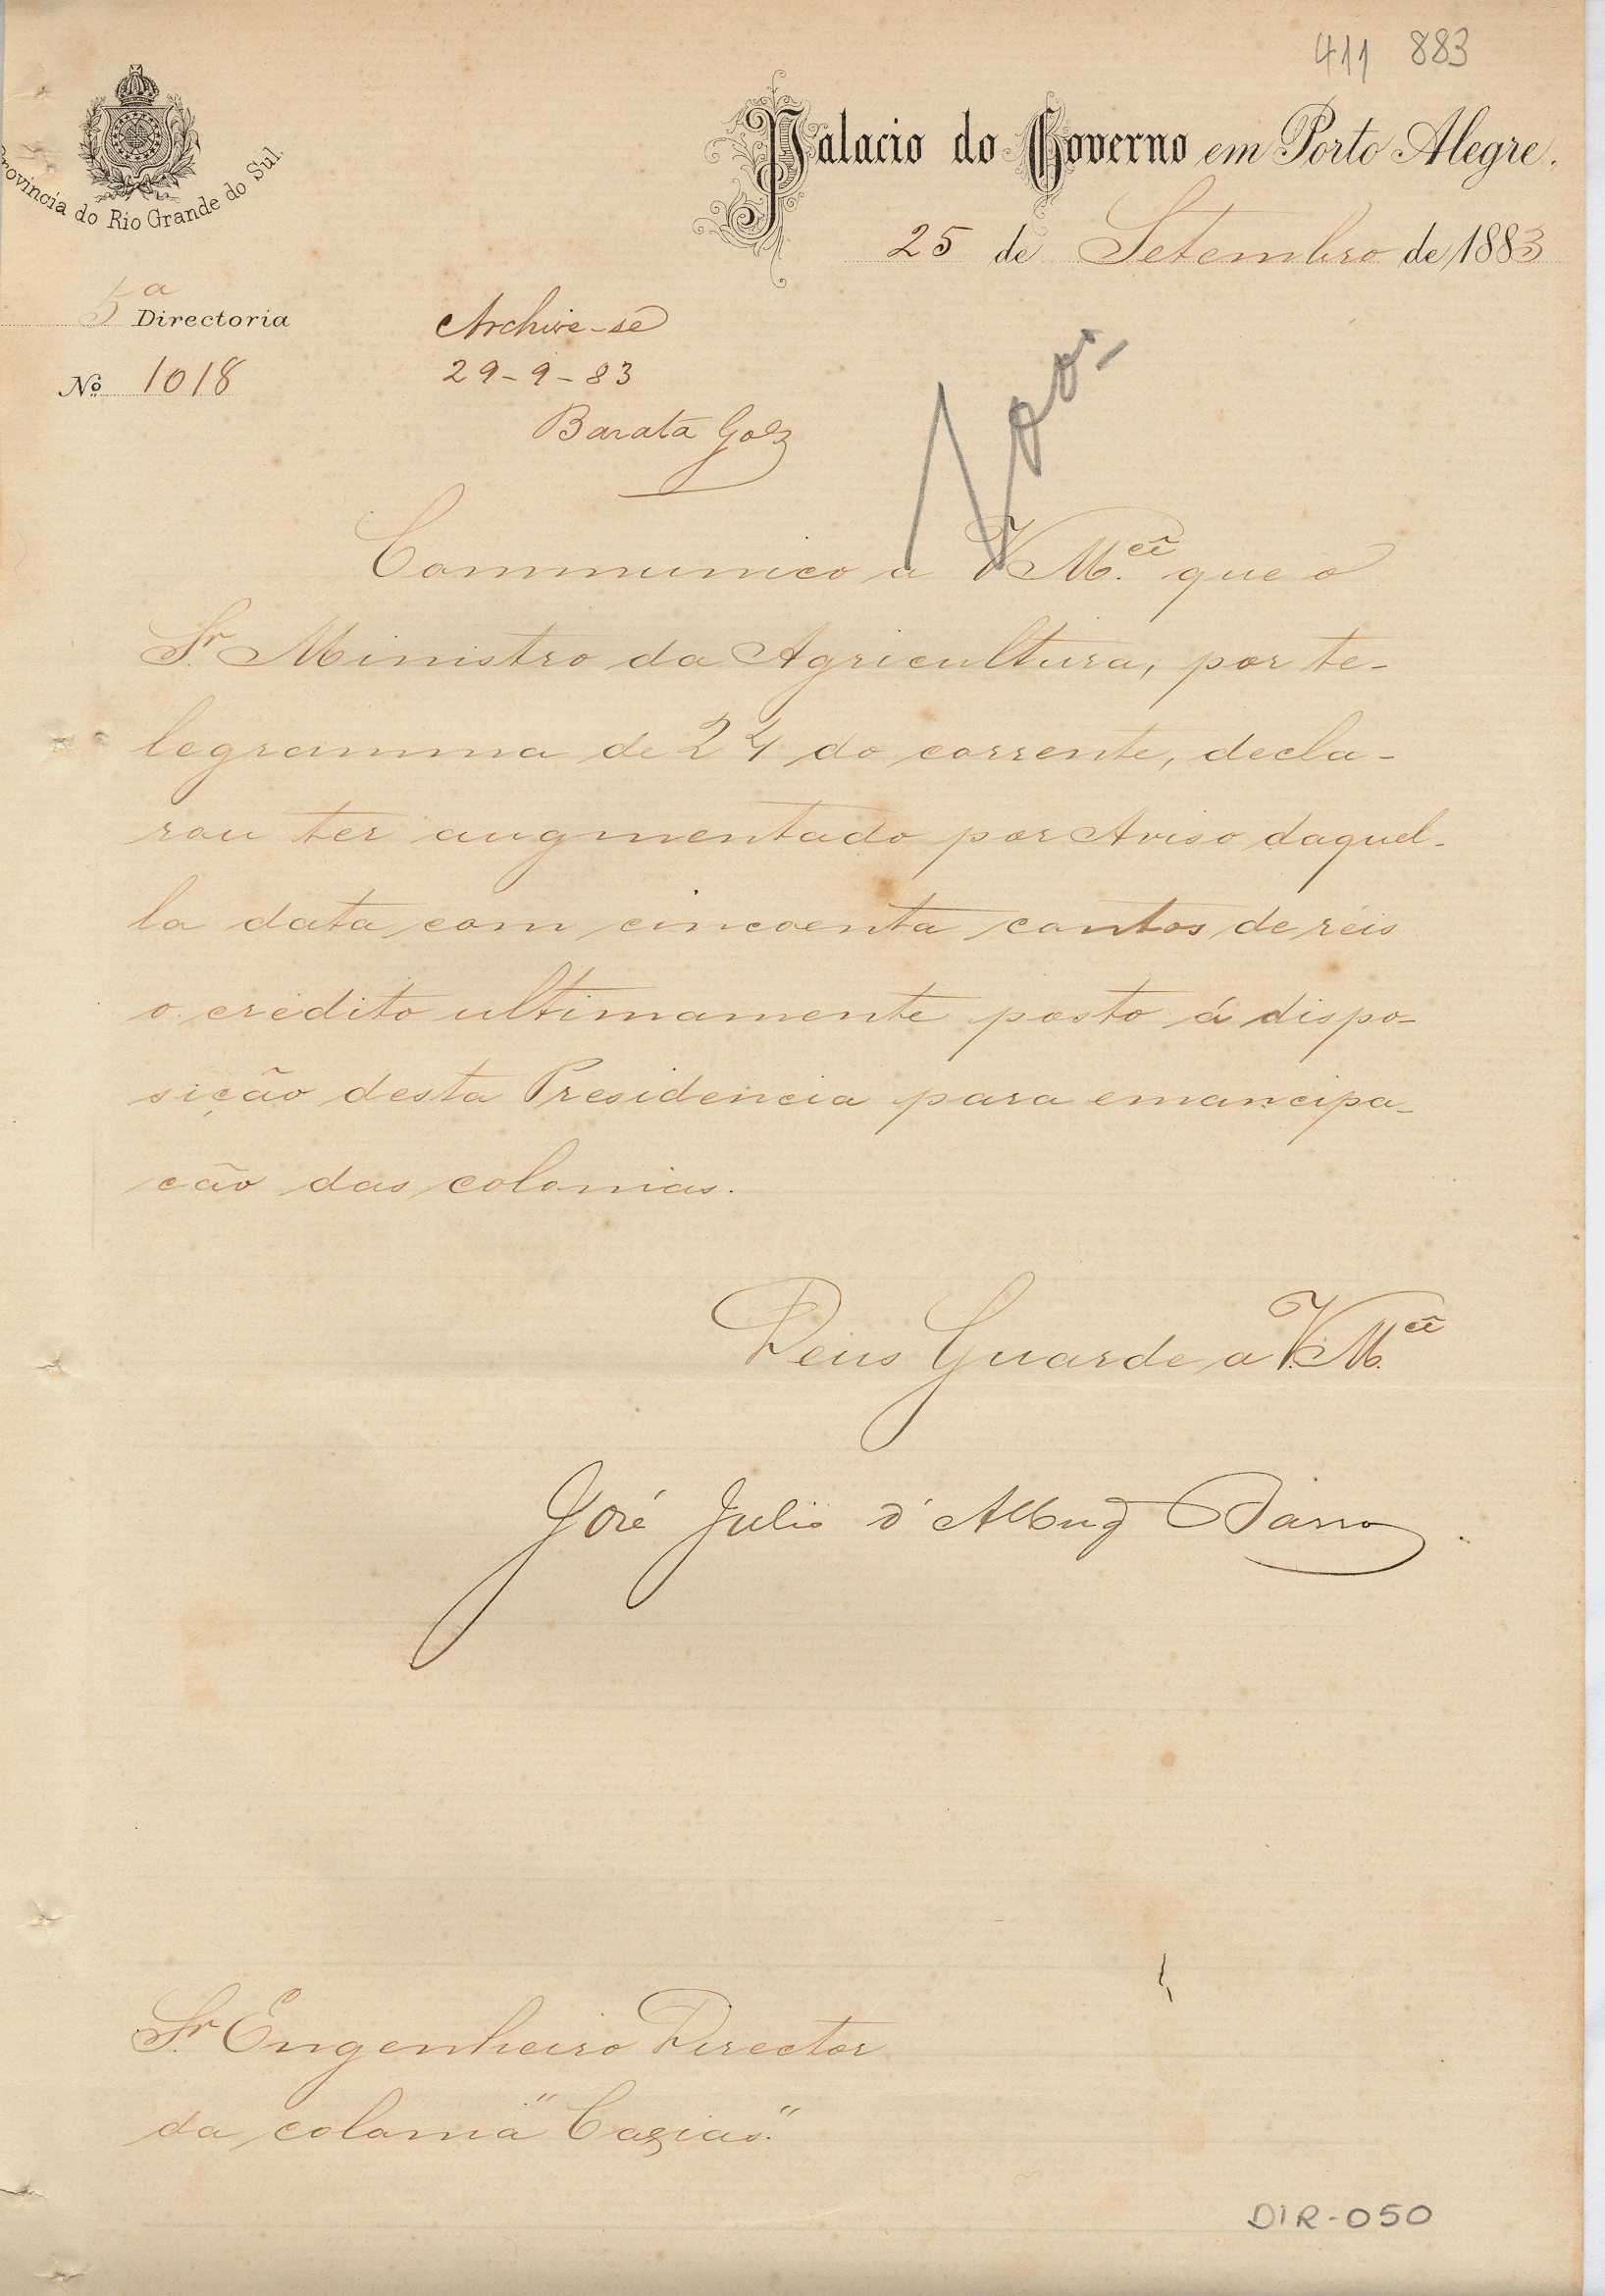 411 883
Provincia do Rio Grande do Sul.
Palacio do Governo em Porto Alegre.
25 de Setembro de 1883
5ª Directoria
Nº 1018
Archive-se
29-9-83
Barata Góes
Communico a VM.cê que o
Sr. Ministro da Agricultura, por te-
legramma de 24 do corrente, decla-
rou ter augmentado por Aviso daquel-
la data com cincoenta contos de réis
o credito ultimamente posto á dispo-
sição desta Presidencia para emancipa-
ção das colonias.
Deus Guarde a V.M.cê
José Julio d'Albuq Barros.
Sr. Engenheiro Director
da colonia "Caxias".
DIR-050